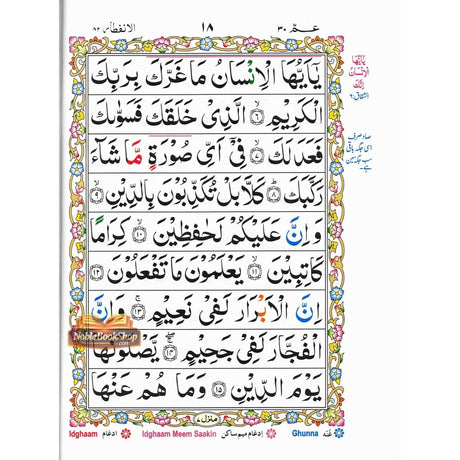 عـمّ ٣٠ ١٨ الانفطار ٨٢
يٰۤاَيُّهَا الْاِنْسَانُ مَا غَرَّكَ بِرَبِّكَ
الْكَرِيْمِ ۙ﴿٦﴾ الَّذِىْ خَلَقَكَ فَسَوّٰىكَ
فَعَدَلَكَ ۙ﴿٧﴾ فِىْۤ اَىِّ صُوْرَةٍ مَّا شَآءَ
رَكَّبَكَ ؕ﴿٨﴾ كَلَّا بَلْ تُكَذِّبُوْنَ بِالدِّيْنِ ۙ﴿٩﴾
وَاِنَّ عَلَيْكُمْ لَحٰفِظِيْنَ ۙ﴿١٠﴾ كِرَامًا
كَاتِبِيْنَ ۙ﴿١١﴾ يَعْلَمُوْنَ مَا تَفْعَلُوْنَ ﴿١٢﴾
اِنَّ الْاَبْرَارَ لَفِىْ نَعِيْمٍ ۚ﴿١٣﴾ وَاِنَّ
الْفُجَّارَ لَفِىْ جَحِيْمٍ ۚ﴿١٤﴾ يَّصْلَوْنَهَا
يَوْمَ الدِّيْنِ ﴿١٥﴾ وَمَا هُمْ عَنْهَا
منزل ٧
يٰۤاَيُّهَا
الْاِنْسَانُ
صاد صرف
اسی جگہ باقی
سب جگہ سین
ہے
NobleBookShop
.com
Idghaam ادغام Idghaam Meem Saakin ادغام میم ساکن Ghunna غنہ